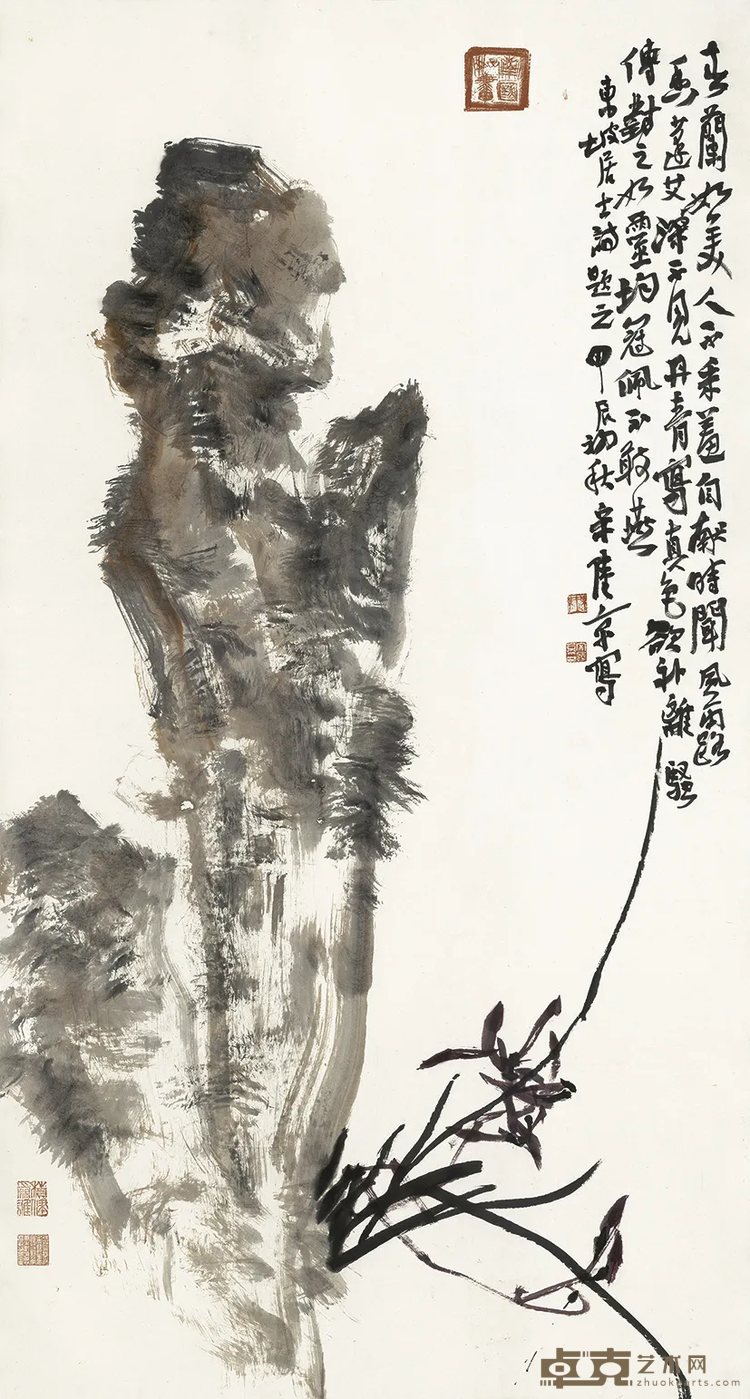 春蘭如美人不采羞自献時聞風露
香蓬艾深不見丹青寫真色欲補離騷
傳對之如靈均冠佩不敢燕
東坡居士詩題之甲辰初秋宋陸京寫
卓克艺术网
zhuokearts.com